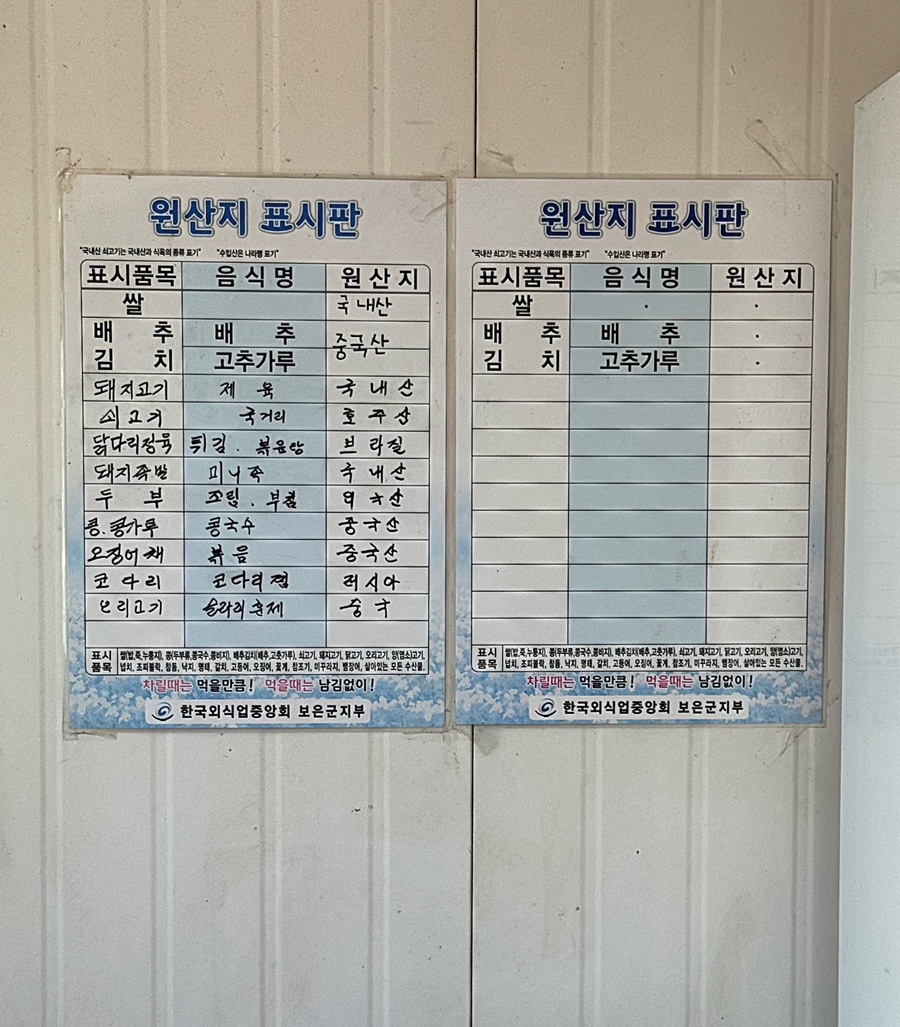 원산지 표시판
"국내산 쇠고기는 국내산과 식육의 종류 표기" "수입산은 나라명 표기"
표시품목 음식명 원산지
쌀 국내산
배추 배추 중국산
김치 고추가루
돼지고기 제육 국내산
쇠고기 국거리 호주산
닭다리정육 튀김. 볶음탕 브라질
돼지족발 미니족 국내산
두부 조림. 부침 외국산
콩.콩가루 콩국수 중국산
오징어채 볶음 중국산
코다리 코다리찜 러시아
오리고기 훈제 중국
표시 쌀(밥,죽,누룽지), 콩(두부류,콩국수,콩비지), 배추김치(배추,고춧가루), 쇠고기, 돼지고기, 닭고기, 오리고기, 양(염소)고기,
품목 넙치, 조피볼락, 참돔, 낙지, 명태, 갈치, 고등어, 오징어, 꽃게, 참조기, 미꾸라지, 뱀장어, 살아있는 모든 수산물,
차릴때는 먹을만큼! 먹을때는 남김없이!
한국외식업중앙회 보은군지부
원산지 표시판
"국내산 쇠고기는 국내산과 식육의 종류 표기" "수입산은 나라명 표기"
표시품목 음식명 원산지
쌀
배추 배추
김치 고추가루
표시 쌀(밥,죽,누룽지), 콩(두부류,콩국수,콩비지), 배추김치(배추,고춧가루), 쇠고기, 돼지고기, 닭고기, 오리고기, 양(염소)고기,
품목 넙치, 조피볼락, 참돔, 낙지, 명태, 갈치, 고등어, 오징어, 꽃게, 참조기, 미꾸라지, 뱀장어, 살아있는 모든 수산물,
차릴때는 먹을만큼! 먹을때는 남김없이!
한국외식업중앙회 보은군지부